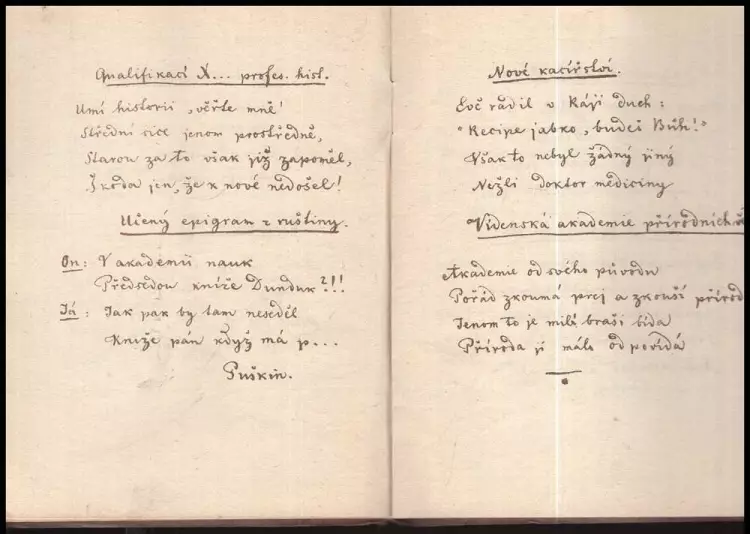 Qualifikací X... profes. hist.
Umí historii, věřte mně!
Střední sice jenom prostředně,
Starou za to však již zapoměl,
Škoda jen, že k nové nedošel!
Učený epigram z ruštiny.
On: V akademii nauk
Předsedou kníže Dunduk?!!
Já: Jak pak by tam neseděl
Kníže pán když má p...
Puškin.
Nové kacířství.
Evě radil v Ráji duch:
"Recipe jabko, budeš Bůh!"
Však to nebyl žádný jiný
Nežli doktor mediciny
Vídenská akademie přírodních
Akademie od svého původu
Pořád zkoumá prej a zkouší přírod
Jenom to je milá braši bída
Příroda jí málo odpovídá